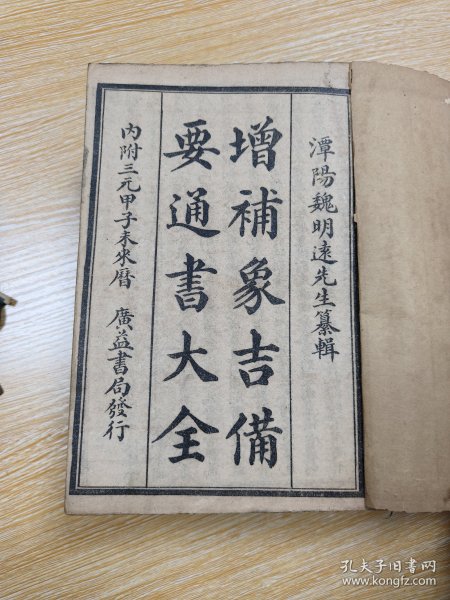 潭陽魏明遠先生纂輯
增補象吉備
要通書大全
內附三元甲子未來曆 廣益書局發行
孔夫子旧书网
www.kongfz.com